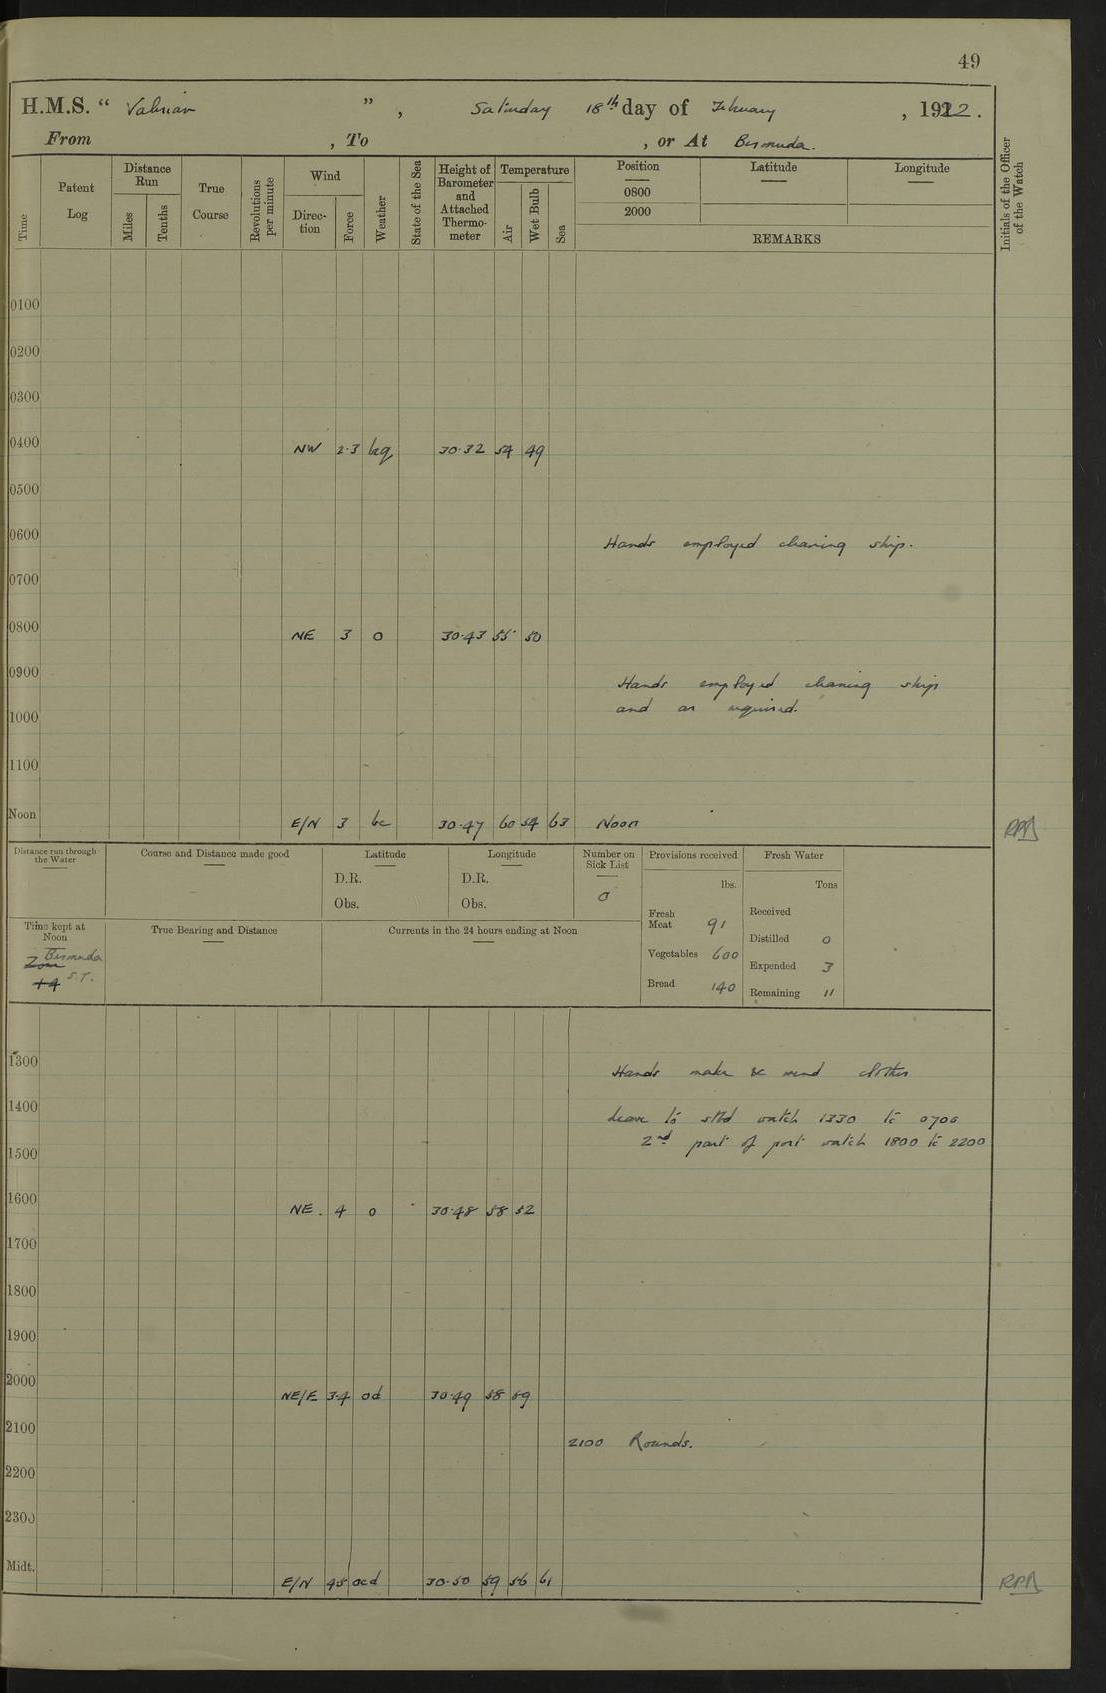 49
H.M.S. " Valerian " , Saturday 18th day of February , 1922.
From , To , or At Bermuda.
Time
Patent Log
Distance Run
Miles
Tenths
True Course
Revolutions per minute
Wind
Direc-tion
Force
Weather
State of the Sea
Height of Barometer and Attached Thermo-meter
Temperature
Air
Wet Bulb
Sea
Position
0800
2000
Latitude
Longitude
REMARKS
Initials of the Officer of the Watch
0100
0200
0300
0400 NW 2·3 bcq 30·32 54 49
0500
0600 Hands employed cleaning ship.
0700
0800 NE 3 o 30·43 55 50
0900 Hands employed cleaning ship
and as required.
1000
1100
Noon E/N 3 bc 30·47 60 54 63 Noon
Distance run through the Water
Course and Distance made good
Latitude
D.R.
Obs.
Longitude
D.R.
Obs.
Number on Sick List
0
Provisions received
lbs.
Fresh Meat 91
Vegetables 600
Bread 140
Fresh Water
Tons
Received
Distilled 0
Expended 3
Remaining 11
Time kept at Noon
Zone +4
Bermuda S.T.
True Bearing and Distance
Currents in the 24 hours ending at Noon
1300 Hands make & mend clothes
1400 Leave to stbd watch 1330 to 0700
2nd part of port watch 1800 to 2200
1500
1600 NE. 4 o 30·48 58 52
1700
1800
1900
2000 NE/E 3·4 od 30·49 58 59
2100 2100 Rounds.
2200
2300
Midt. E/N 45 ocd 30·50 59 56 61